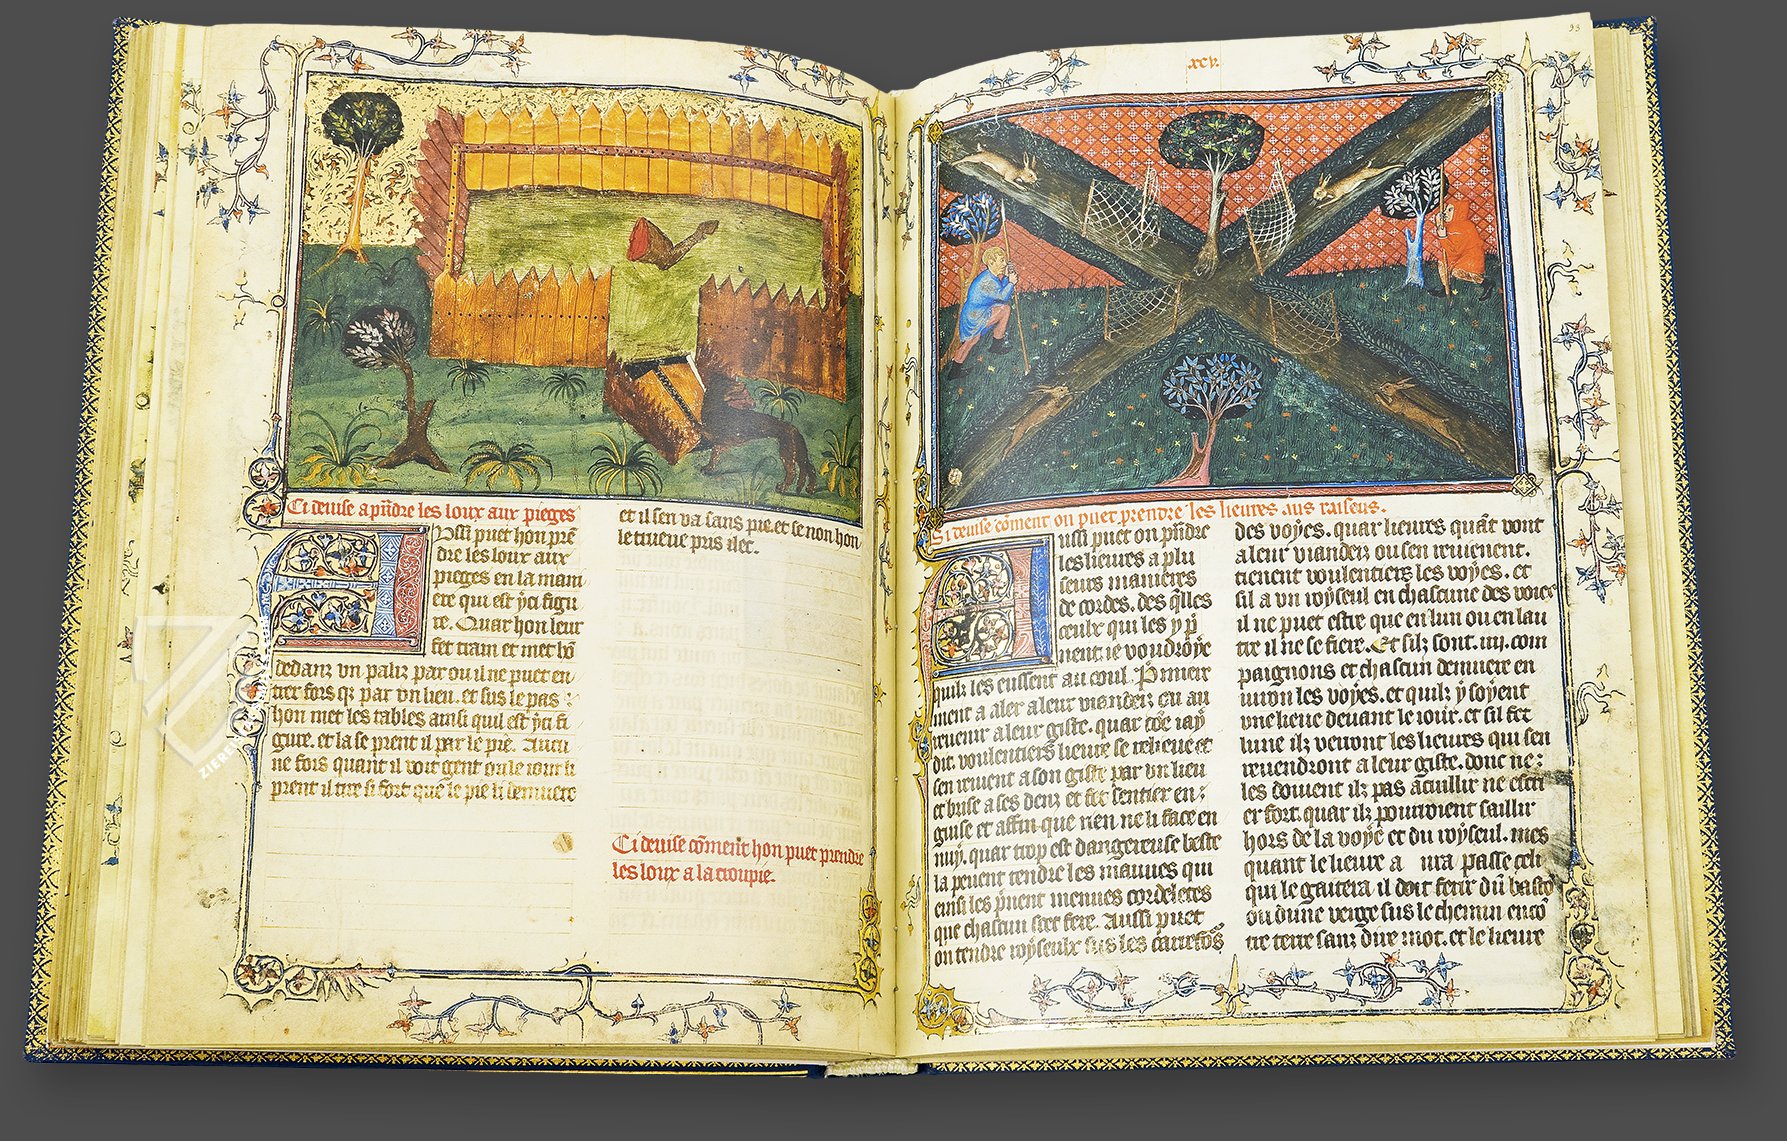 Ci deuise a pñdre les loux aux pieges
Aussi puet hon prē
dre les loux aux
pieges en la mani
ere qui est yci figu
ree. Quar hon leur
fet train et met hō
dedanz vn paliz par ou il ne puet en
trer fors qz par vn lieu. et sus le pas
hon met les tables ainsi quil est yci fi
gure. et la se prent il par le pie. Aucu
ne fors quant il voit gent ou le iour li
prent il tire si fort que le pie li demeure
et il sen va sans pie. et se non hon
le treuue pris ilec.
Ci deuise cōment hon puet prendre
les loux a la croupie.
xcv.
93
Ci deuise cōment on puet prendre les lieures aus raiseus.
Aussi puet on pñdre
les lieures a plu
seurs manieres
de cordes. des q̄lles
ceulx qui les y p̄
nent ie voudroye
quilz les eussent au coul. Premier
ment a aler a leur viandeiz ou au
reuenir a leur giste. quar cōe iay
dit. voulentiers lieure se relieue et
sen reuient a son giste par vn lieu
et brise a ses denz et fet sentier en
guise et affin que rien ne li face en
nuy. quar trop est dangereuse beste
la peuent tendre les mauues qui
einsi les p̄nent menues cordeletes
que chascun scet fere. Aussi puet
on tendre royseulx sus les carrefōs
des voyes. quar lieures quāt vont
a leur viandeiz ou sen reuienent.
tienent voulentiers les voyes. et
sil a vn royseul en chascune des voies
il ne puet estre que en lun ou en lau
tre il ne se fiere. Et silz sont .iiij. com
paignons et chascun demuere en
uiron les voyes. et quilz y soyent
vne lieue deuant le iour. et sil fet
lune ilz verront les lieures qui sen
reuendront a leur giste. donc ne
les doiuent ilz pas acuillir ne escri
er fort. quar ilz pourroient saillir
hors de la voye et du royseul. mes
quant le lieure a ura passe celi
qui le gaitera il doit ferir dū basto
ou dune verge sus le chemin encō
tre terre sanz dire mot. et le lieure